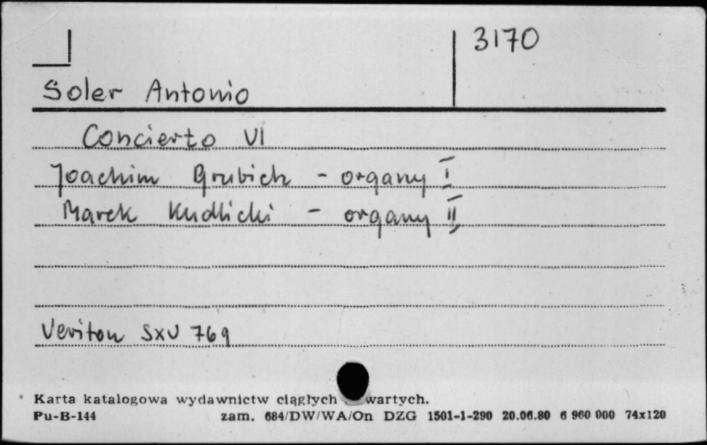 3170
Soler Antonio
Concierto VI
Joachim Grubich - organy I
Marek Kudlicki - organy II
Veriton SXV 769
Karta katalogowa wydawnictw ciągłych wartych.
Pu-B-144 zam. 684/DW/WA/On DZG 1501-1-290 20.06.80 6 960 000 74x120